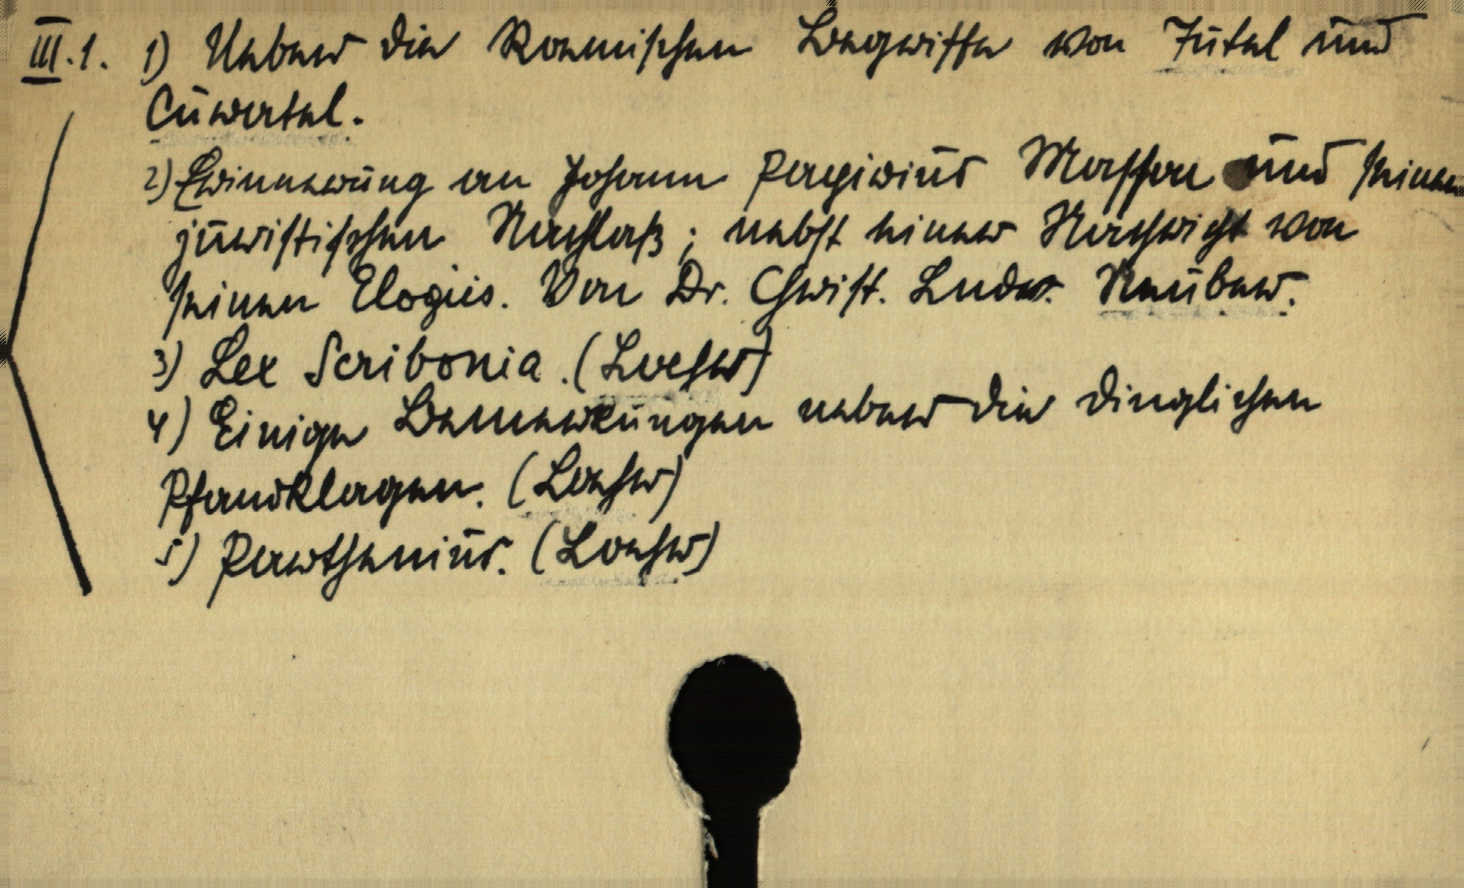 III.1. 1) Ueber die Roemischen Begriffe von Tutel und
Curatel.
2) Erinnerung an Johann Papirius Masson und seinen
juristischen Nachlaß; nebst einer Nachricht von
seinen Elogiis. Von Dr. Christ. Ludw. Neuber.
3) Lex Scribonia. (Loehr)
4) Einige Bemerkungen ueber die dinglichen
Pfandklagen. (Loehr)
5) Parthenius. (Loehr)